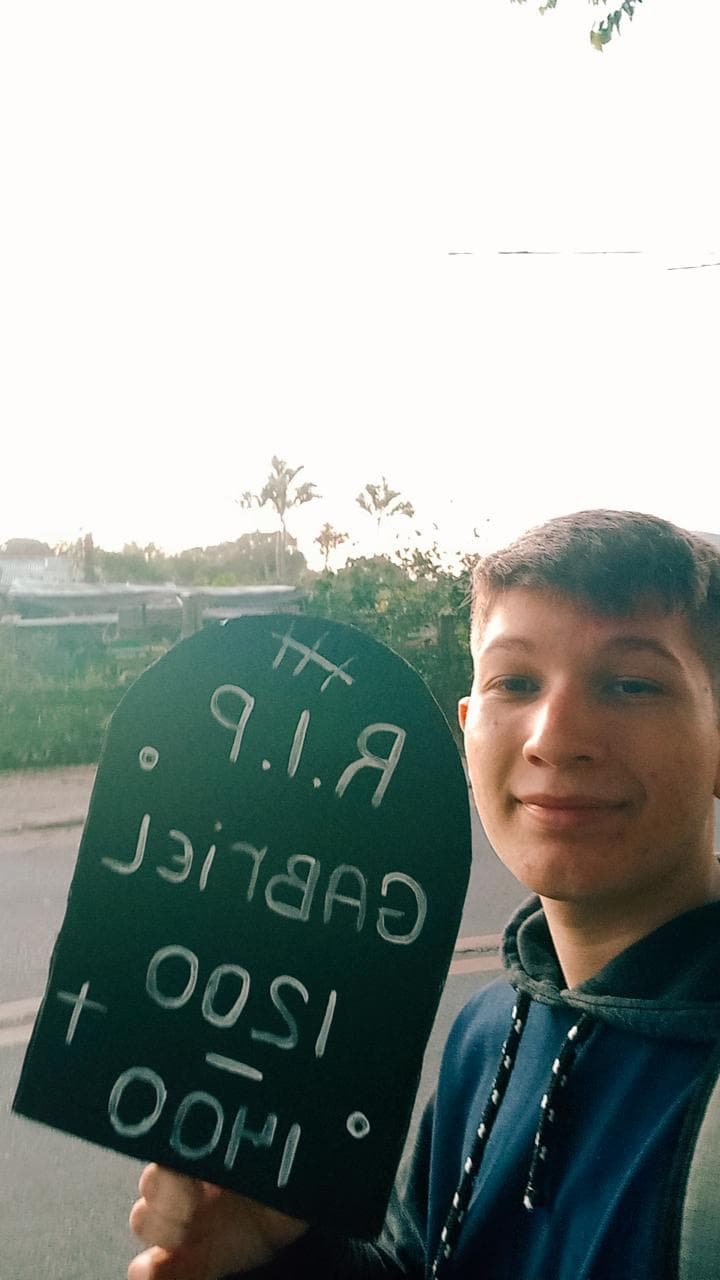 R.I.P
GABriEL
1200
-
1400